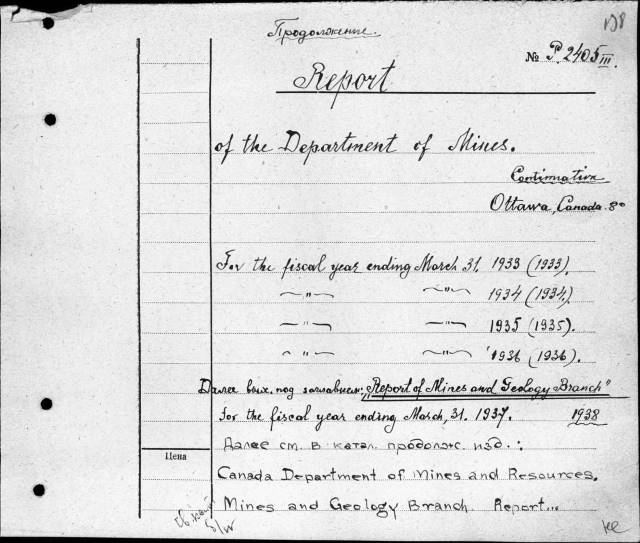 Продолжение.
№ P. 2405 III
Report
of the Department of Mines.
Continuation
Ottawa, Canada. 8°
For the fiscal year ending March 31. 1933 (1933).
—"— —"— 1934 (1934.)
—"— —"— 1935 (1935).
—"— —"— 1936 (1936).
Далее вых. под заглавием: „Report of Mines and Geology Branch"
For the fiscal year ending March, 31. 1937. 1938
Далее см. в катал. продолж. изд.:
Цена
Canada Department of Mines and Resources.
Mines and Geology Branch. Report...